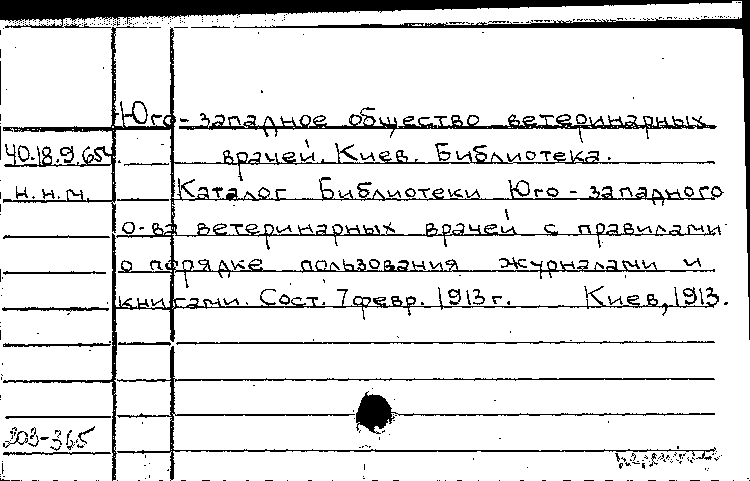 Юго-западное общество ветеринарных
40.18.9.654 врачей. Киев. Библиотека.
н.н.м. Каталог Библиотеки Юго-западного
о-ва ветеринарных врачей с правилами
о порядке пользования журналами и
книгами. Сост. 7 февр. 1913 г. Киев, 1913.
203-365